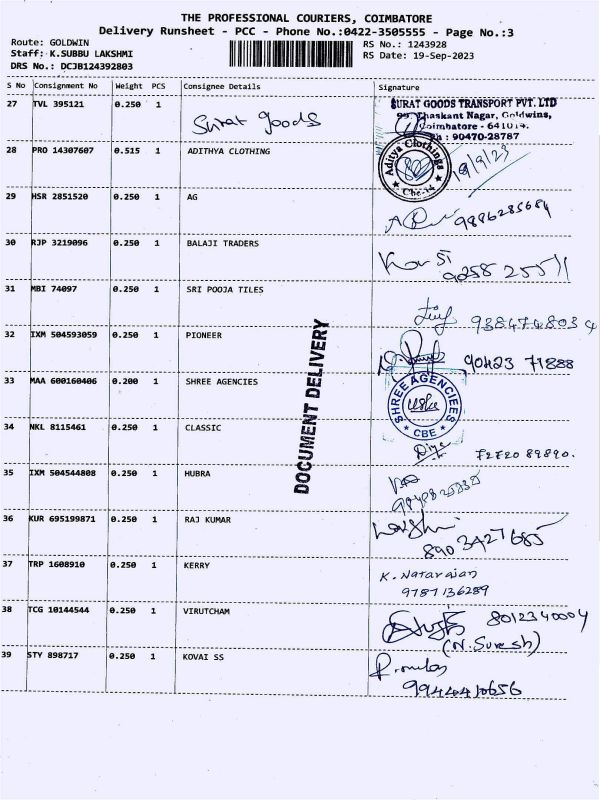 THE PROFESSIONAL COURIERS, COIMBATORE
Delivery Runsheet - PCC - Phone No.:0422-3505555 - Page No.:3
Route: GOLDWIN RS No.: 1243928
Staff: K.SUBBU LAKSHMI RS Date: 19-Sep-2023
DRS No.: DCJB124392803
S No Consignment No Weight PCS Consignee Details Signature
27 TVL 395121 0.250 1 Surat goods
SURAT GOODS TRANSPORT PVT. LTD
Bhaskant Nagar, Goldwins,
Coimbatore - 641014.
Ph : 90470-28787
28 PRO 14307607 0.515 1 ADITHYA CLOTHING
Aditya Clothings
Cbe-14
19/9/23
29 HSR 2851520 0.250 1 AG
9886285684
30 RJP 3219096 0.250 1 BALAJI TRADERS
31 MBI 74097 0.250 1 SRI POOJA TILES
9384748034
32 IXM 504593059 0.250 1 PIONEER
90423 71888
33 MAA 600160406 0.200 1 SHREE AGENCIES
SHREE AGENCIEES
CBE
34 NKL 8115461 0.250 1 CLASSIC
Divya
72720 89890.
35 IXM 504544808 0.250 1 HUBRA
36 KUR 695199871 0.250 1 RAJ KUMAR
8903427685
37 TRP 1608910 0.250 1 KERRY
K. Natarajan
9787136289
38 TCG 10144544 0.250 1 VIRUTCHAM
8012340004
(N. Suresh)
39 STY 898717 0.250 1 KOVAI SS
9944410656
DOCUMENT DELIVERY